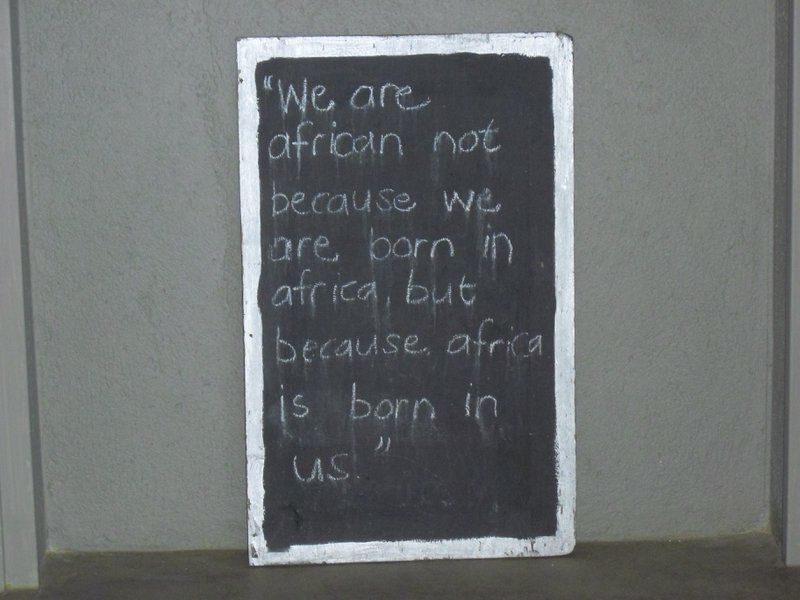 "We are
african not
because we
are born in
africa, but
because africa
is born in
us."